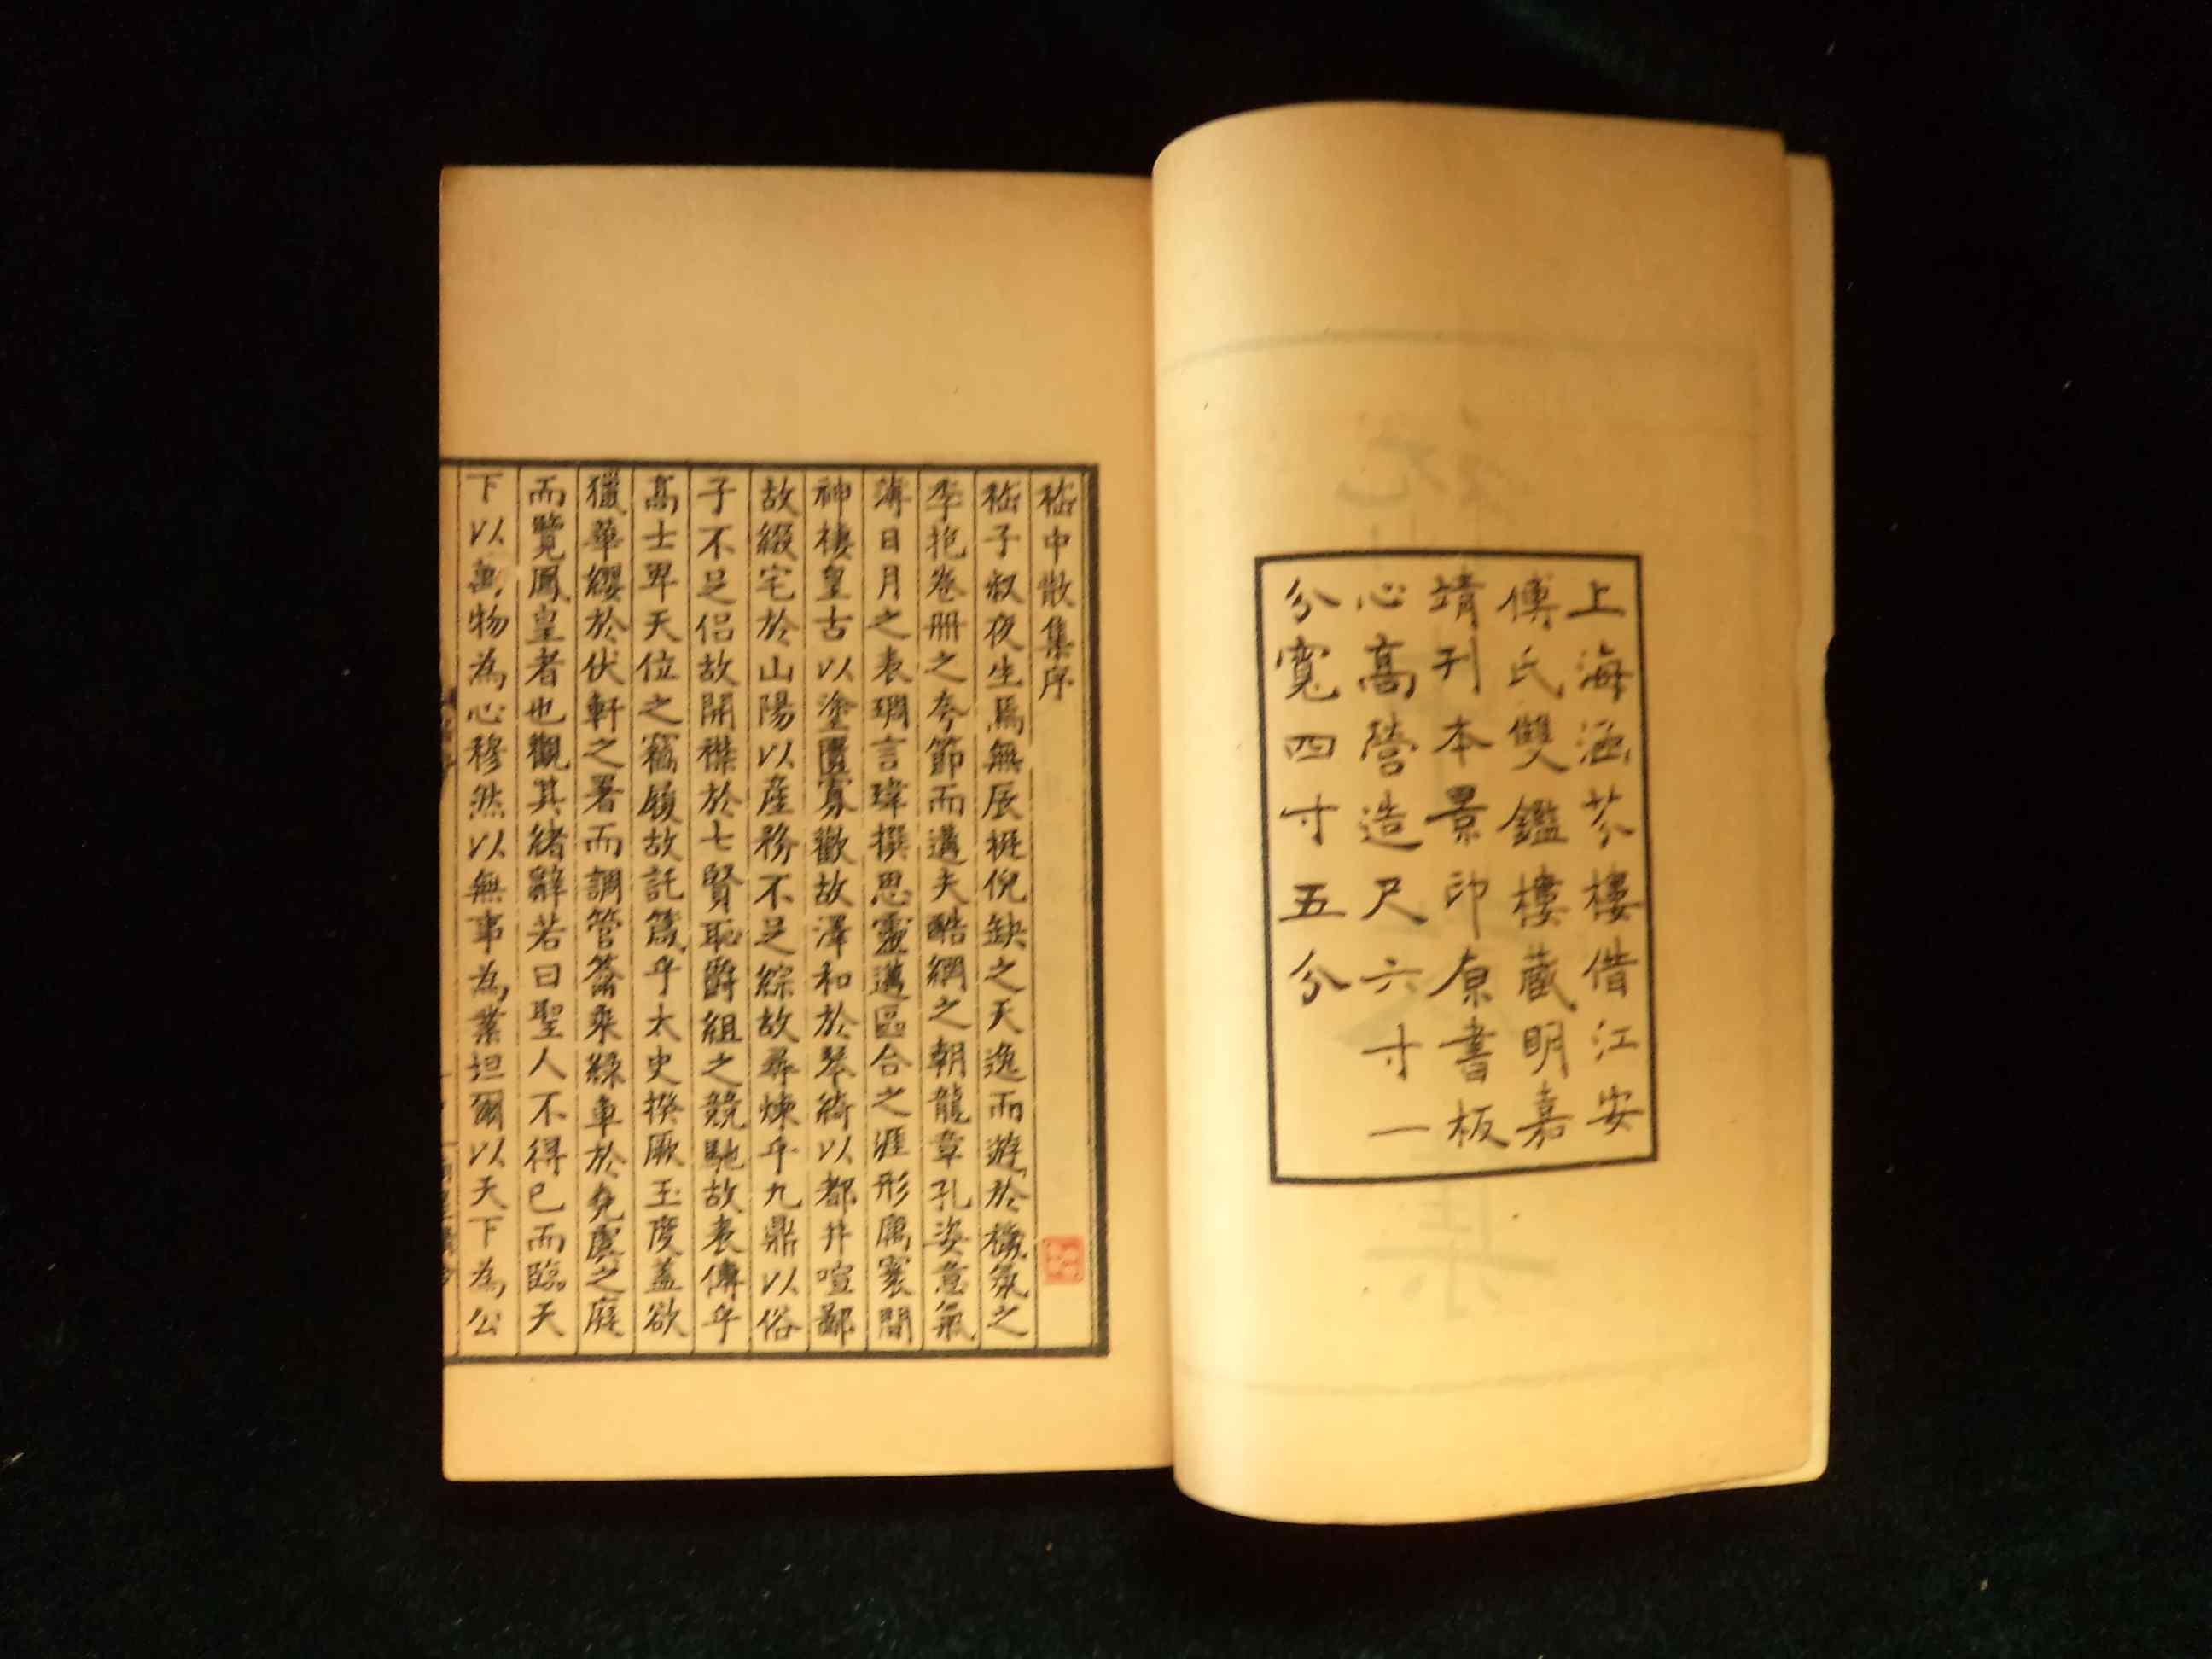 上海涵芬樓借江安
傅氏雙鑑樓藏明嘉
靖刊本景印原書板
心高營造尺六寸一
分寬四寸五分
嵇中散集序
嵇子叔夜生焉無辰挺倪缺之天逸而游於穢氛之
季抱卷冊之夸節而邁夫酷網之朝龍章孔姿意氣
薄日月之表琱言瑋撰思靈邁區合之涯形厲寰間
神棲皇古以塗匱寡歡故澤和於琴綺以都井喧鄙
故綴宅於山陽以產務不足綜故尋煉乎九鼎以俗
子不足侶故開襟於七賢恥爵組之競馳故表傳乎
高士卑天位之竊履故託箴乎太史揆厥玉度蓋欲
獵華纓於伏軒之署而調管籥乘綠車於堯虞之庭
而覽鳳皇者也觀其緒辭若曰聖人不得已而臨天
下以萬物為心穆然以無事為業坦爾以天下為公